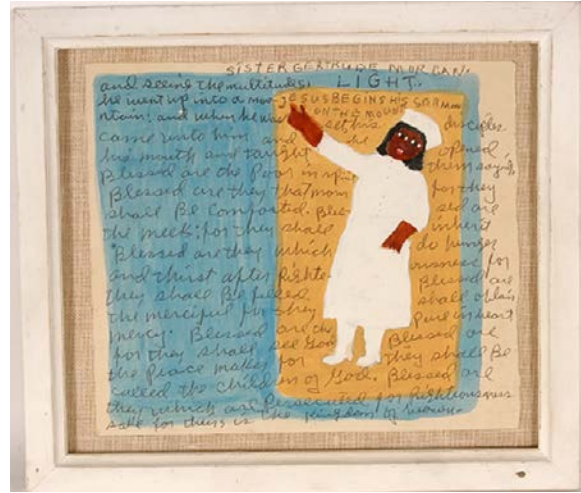 SISTER GERTRUDE MORGAN.
LIGHT.
and seeing the multitudes,
he went up into a moun JESUS BEGINS HIS SARMON
ntain: and when he was ON THE MOUNT
set, his disciples
came unto him and he opened
his mouth and taught them saying,
Blessed are the poor in spirit
Blessed are they that mourn for they
shall Be Comforted. Blessed are
the meek: for they shall inherit
Blessed are they which do hunger
and thirst after Righteousness for
they shall Be filled Blessed are
the merciful for they shall obtain
mercy. Blessed are the Pure in heart
for they shall see God Blessed are
the peace makers for they shall Be
called the children of God. Blessed are
they which are Persecuted for Righteousness
sake for theirs is the Kingdom of heaven.